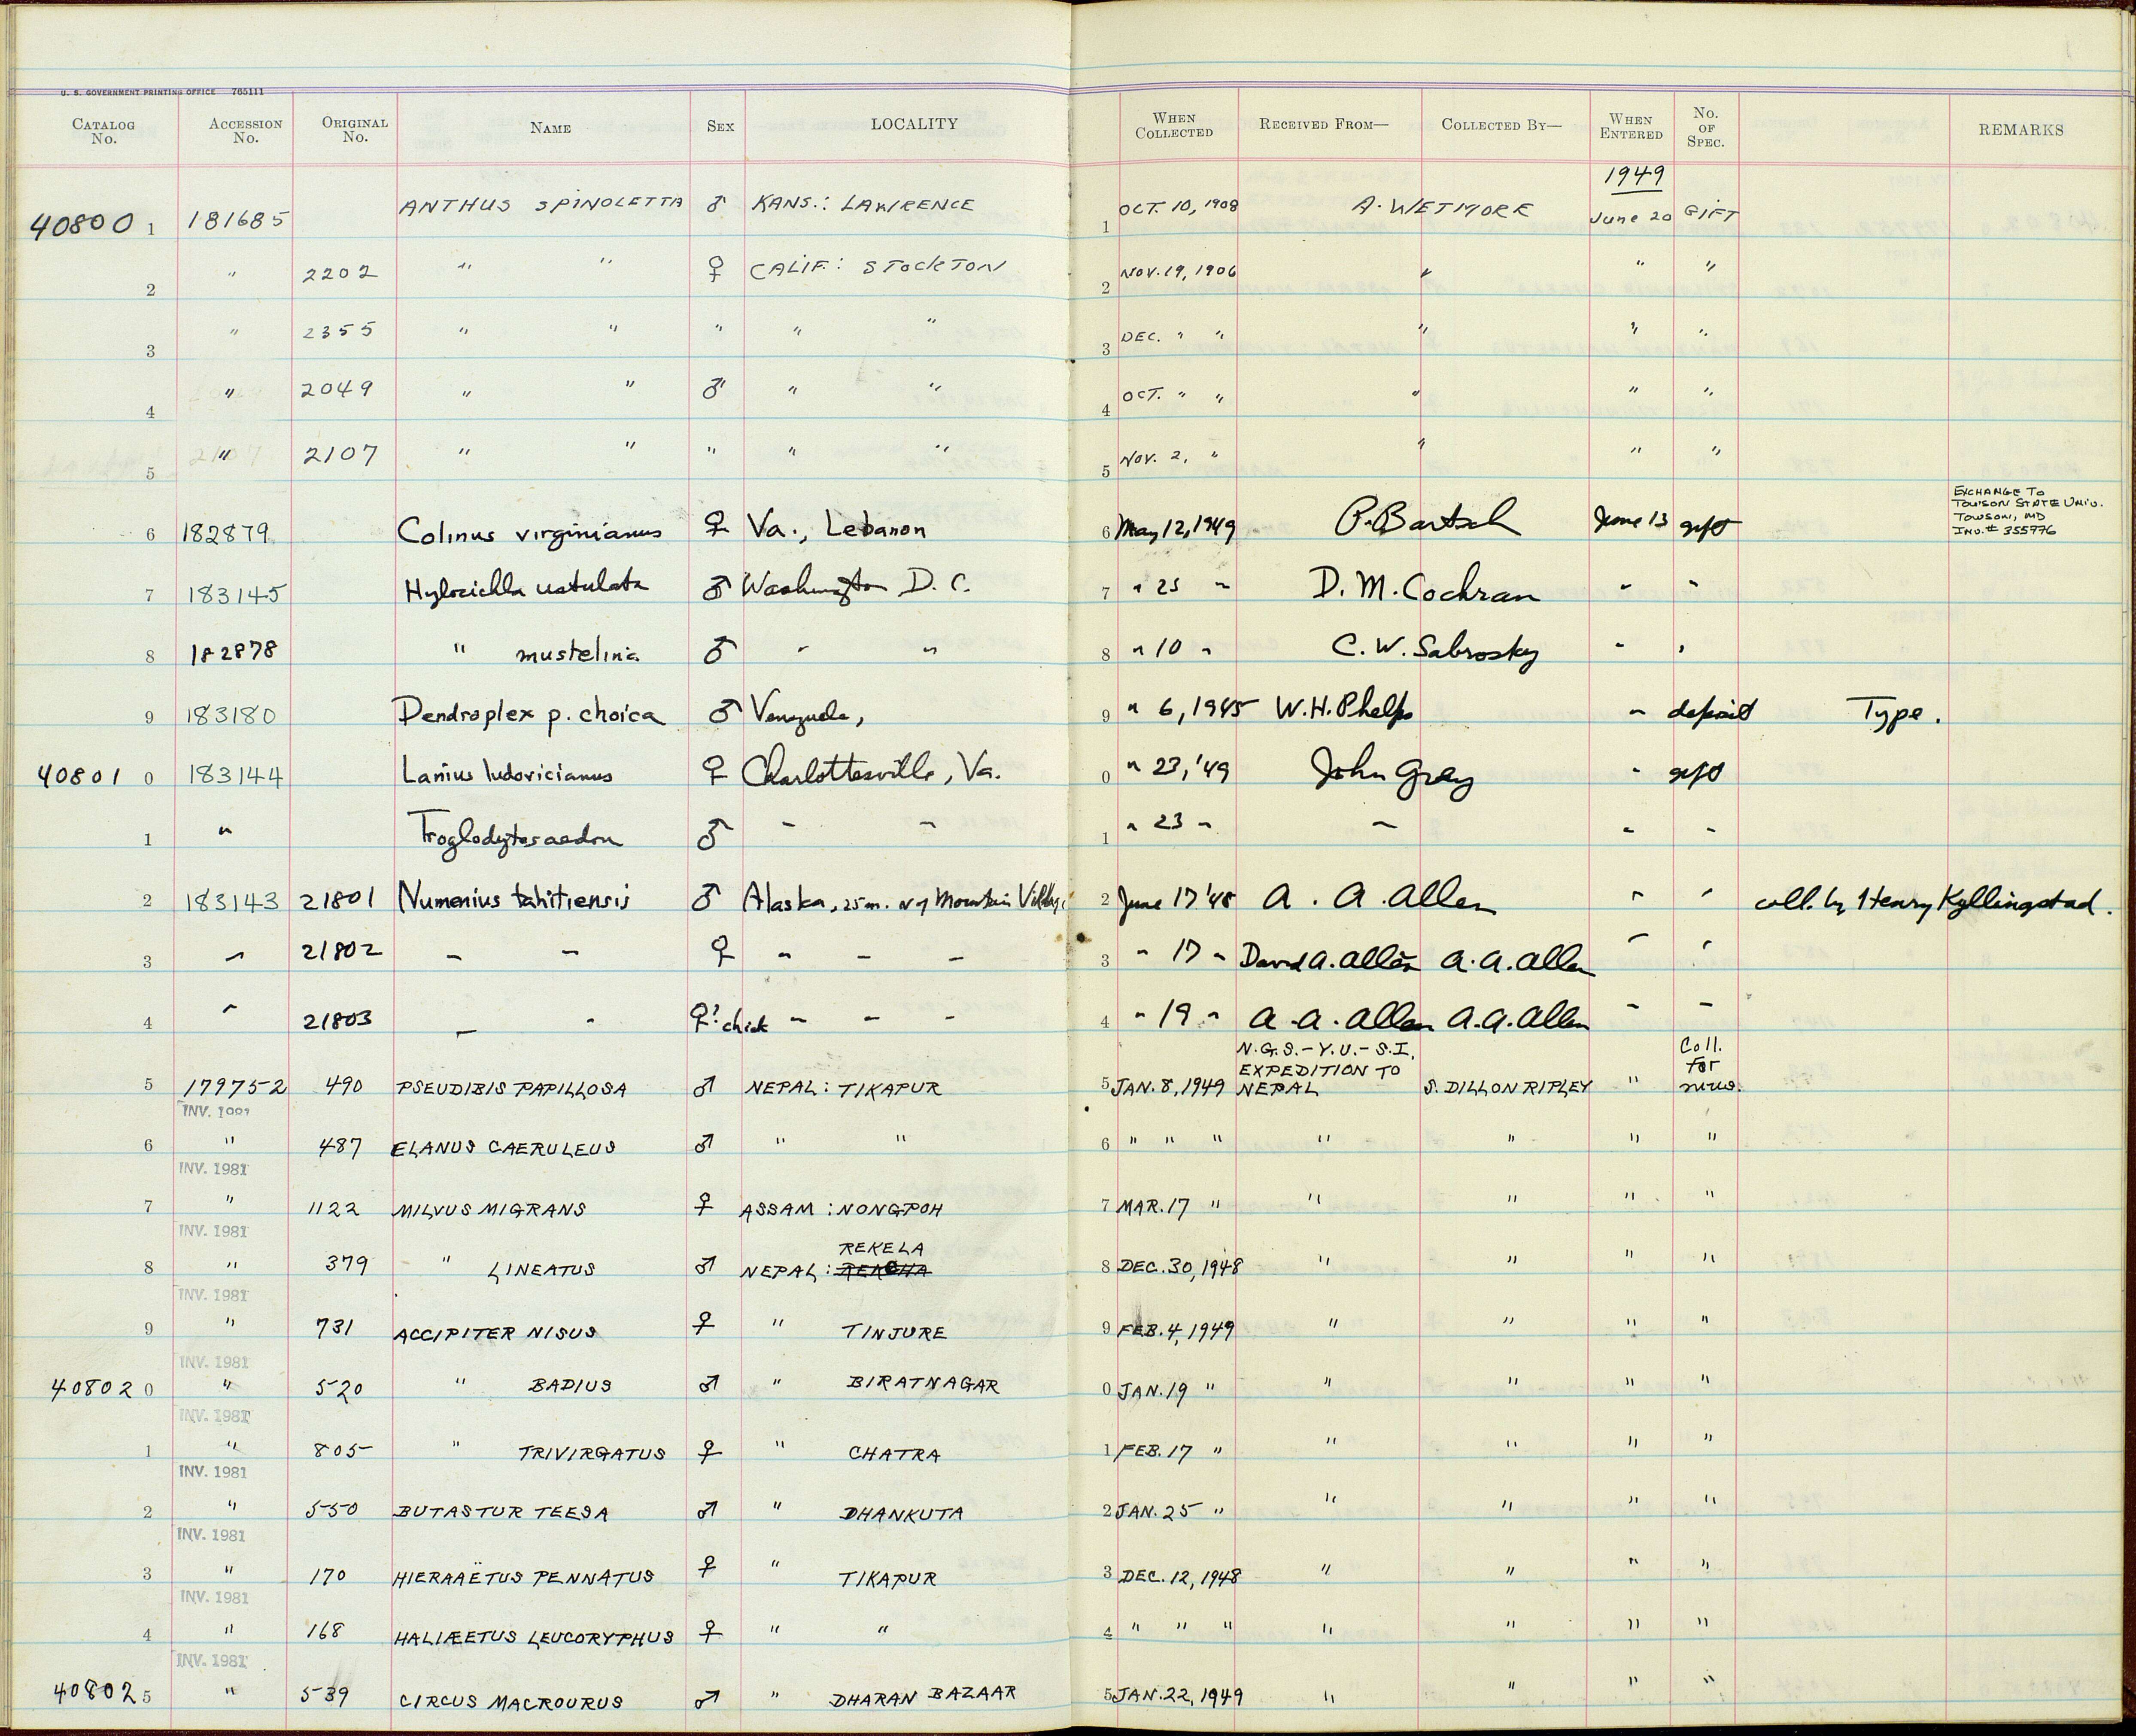 U. S. GOVERNMENT PRINTING OFFICE 765111
CATALOG No. ACCESSION No. ORIGINAL No. NAME SEX LOCALITY WHEN COLLECTED RECEIVED FROM— COLLECTED BY— WHEN ENTERED NO. OF SPEC. REMARKS
1949
40800 1 181685 ANTHUS SPINOLETTA ♂ KANS.: LAWRENCE 1 OCT. 10, 1908 A. WETMORE June 20 GIFT
2 " 2202 " " ♀ CALIF: STOCKTON 2 NOV. 19, 1906 " " "
3 " 2355 " " " " " 3 DEC. " " " " "
4 " 2049 " " ♂ " " 4 OCT. " " " " "
5 " 2107 " " " " " 5 NOV. 2, " " " "
6 182879 Colinus virginianus ♀ Va., Lebanon 6 May 12, 1949 P. Bartsch June 13 gift EXCHANGE TO
TOWSON STATE UNIV.
TOWSON, MD
INV. # 355776
7 183145 Hylocichla ustulata ♂ Washington D. C. 7 " 25 " D. M. Cochran " "
8 182878 " mustelina ♂ " " 8 " 10 " C. W. Sabrosky " "
9 183180 Dendroplex p. choica ♂ Venezuela, 9 " 6, 1945 W. H. Phelps " deposit Type.
40801 0 183144 Lanius ludovicianus ♀ Charlottesville, Va. 0 " 23, '49 John Gray " gift
1 " Troglodytes aedon ♂ " " 1 " 23 " " " "
2 183143 21801 Numenius tahitiensis ♂ Alaska, 25 m. N of Mountain Village 2 June 17 '48 A. A. Allen " " coll. by Henry Kyllingstad.
3 " 21802 " " ♀ " " " 3 " 17 " David A. Allen A. A. Allen " "
4 " 21803 " " ♀? chick " " " 4 " 19 " A. A. Allen A. A. Allen " "
5 179752 490 PSEUDIBIS PAPILLOSA ♂ NEPAL: TIKAPUR 5 JAN. 8, 1949 N.G.S.-Y.U.-S.I. EXPEDITION TO NEPAL S. DILLON RIPLEY " Coll. for mus.
INV. 1981
6 " 487 ELANUS CAERULEUS ♂ " " 6 " " " " " " "
INV. 1981
7 " 1122 MILVUS MIGRANS ♀ ASSAM: NONGPOH 7 MAR. 17 " " " " "
INV. 1981
REKELA
8 " 379 " LINEATUS ♂ NEPAL: 8 DEC. 30, 1948 " " " "
INV. 1981
9 " 731 ACCIPITER NISUS ♀ " TINJURE 9 FEB. 4, 1949 " " " "
INV. 1981
40802 0 " 520 " BADIUS ♂ " BIRATNAGAR 0 JAN. 19 " " " " "
INV. 1981
1 " 805 " TRIVIRGATUS ♀ " CHATRA 1 FEB. 17 " " " " "
INV. 1981
2 " 550 BUTASTUR TEESA ♂ " DHANKUTA 2 JAN. 25 " " " " "
INV. 1981
3 " 170 HIERAAËTUS PENNATUS ♀ " TIKAPUR 3 DEC. 12, 1948 " " " "
INV. 1981
4 " 168 HALIÆETUS LEUCORYPHUS ♀ " " 4 " " " " " " "
INV. 1981
40802 5 " 539 CIRCUS MACROURUS ♂ " DHARAN BAZAAR 5 JAN. 22, 1949 " " " "